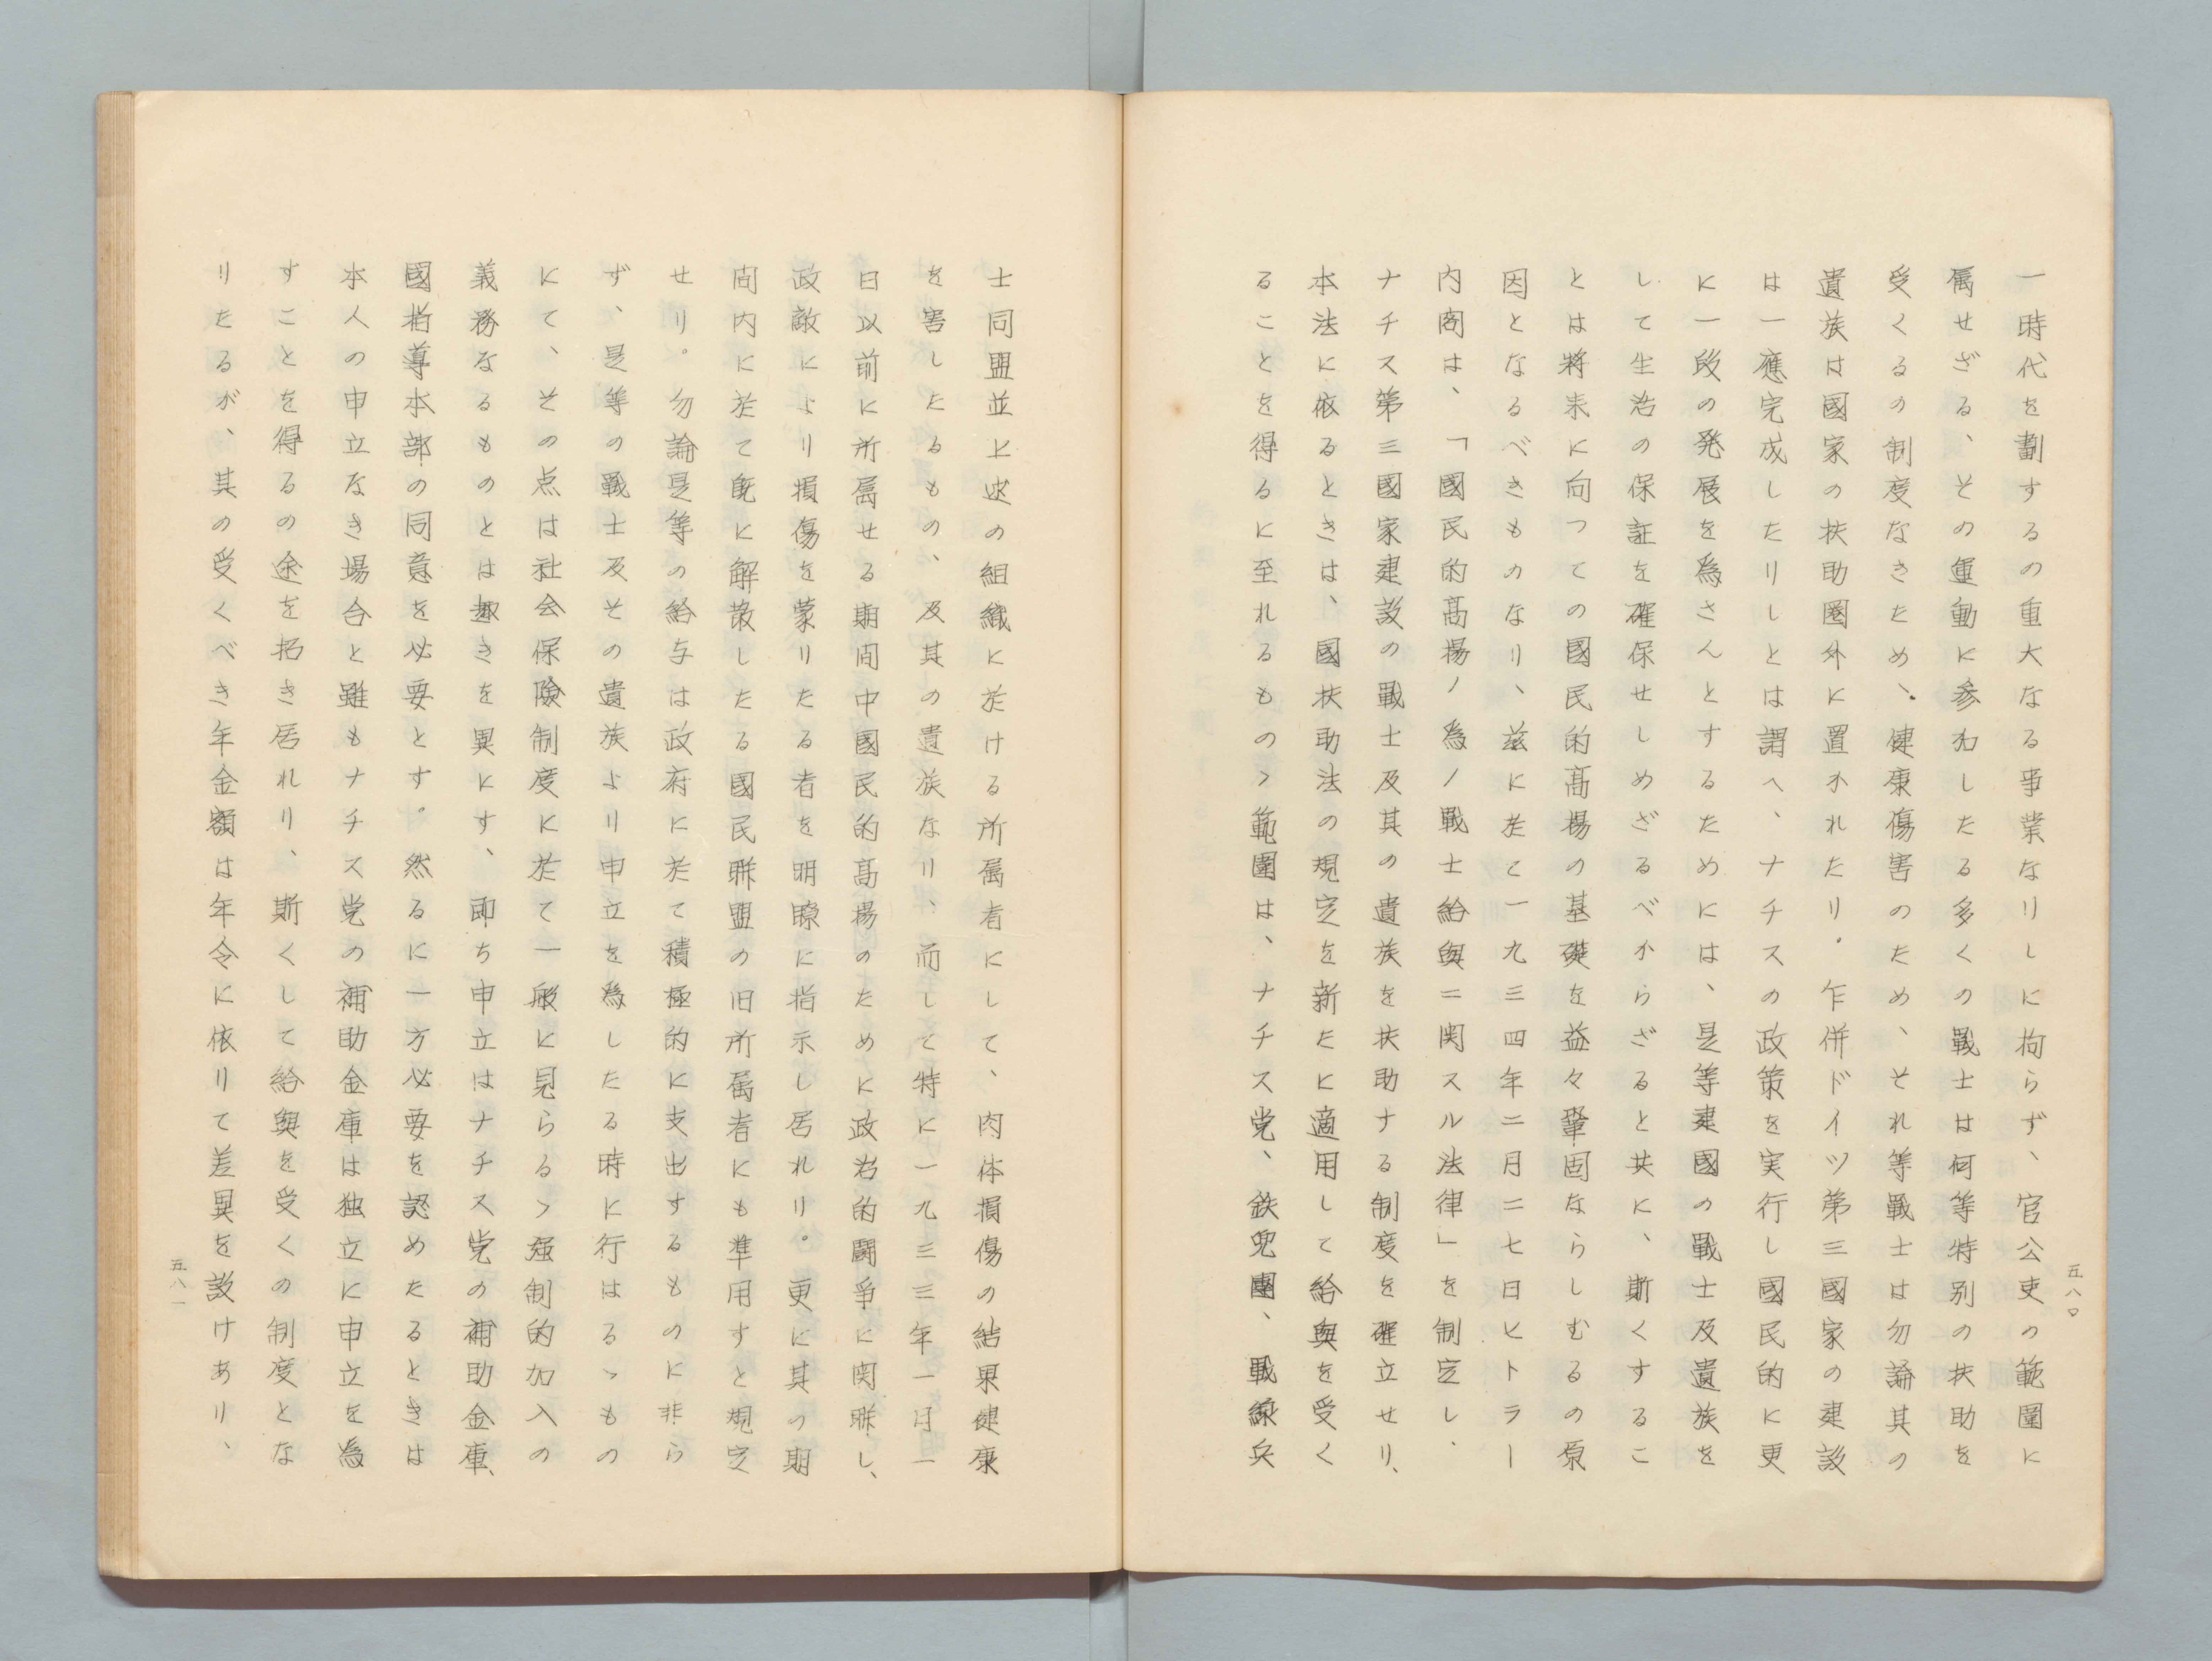 一時代を劃するの重大なる事業なりしに拘らず、官公吏の範圍に
属せざる、その運動に参加したる多くの戰士は何等特別の扶助を
受くるの制度なきため、健康傷害のため、それ等戰士は勿論其の
遺族は國家の扶助圏外に置かれたり。乍併ドイツ第三國家の建設
は一應完成したりしとは謂へ、ナチスの政策を実行し國民的に更
に一段の発展を為さんとするためには、是等建國の戰士及遺族を
して生活の保証を確保せしめざるべからざると共に、斯くするこ
とは将来に向つての國民的高揚の基礎を益々鞏固ならしむるの原
因となるべきものなり、茲に於て一九三四年二月二七日ヒトラー
内閣は、「國民的高揚ノ為ノ戰士給與ニ関スル法律」を制定し、
ナチス第三國家建設の戰士及其の遺族を扶助する制度を確立せり、
本法に依るときは、國扶助法の規定を新たに適用して給與を受く
ることを得るに至れるものゝ範圍は、ナチス党、鉄兜團、戰線兵
五八〇
士同盟並上述の組織に於ける所属者にして、肉体損傷の結果健康
を害したるもの、及其の遺族なり、而して特に一九三三年一月一
日以前に所属せる期间中國民的高揚のために政治的闘爭に関聯し、
政敵により損傷を蒙りたる者を明瞭に指示し居れり。更に其の期
间内に於て既に解散したる國民聯盟の旧所属者にも準用すと規定
せり。勿論是等の給与は政府に於て積極的に支出するものに非ら
ず、是等の戰士及その遺族より申立を為したる時に行はるゝもの
にて、その点は社会保険制度に於て一般に見らるゝ强制的加入の
義務なるものとは趣きを異にす、即ち申立はナチス党の補助金庫、
國指導本部の同意を必要とす。然るに一方必要を認めたるときは
本人の申立なき場合と雖もナチス党の補助金庫は独立に申立を為
すことを得るの途を拓き居れり、斯くして給與を受くの制度とな
りたるが、其の受くべき年金額は年令に依りて差異を設けあり、
五八一